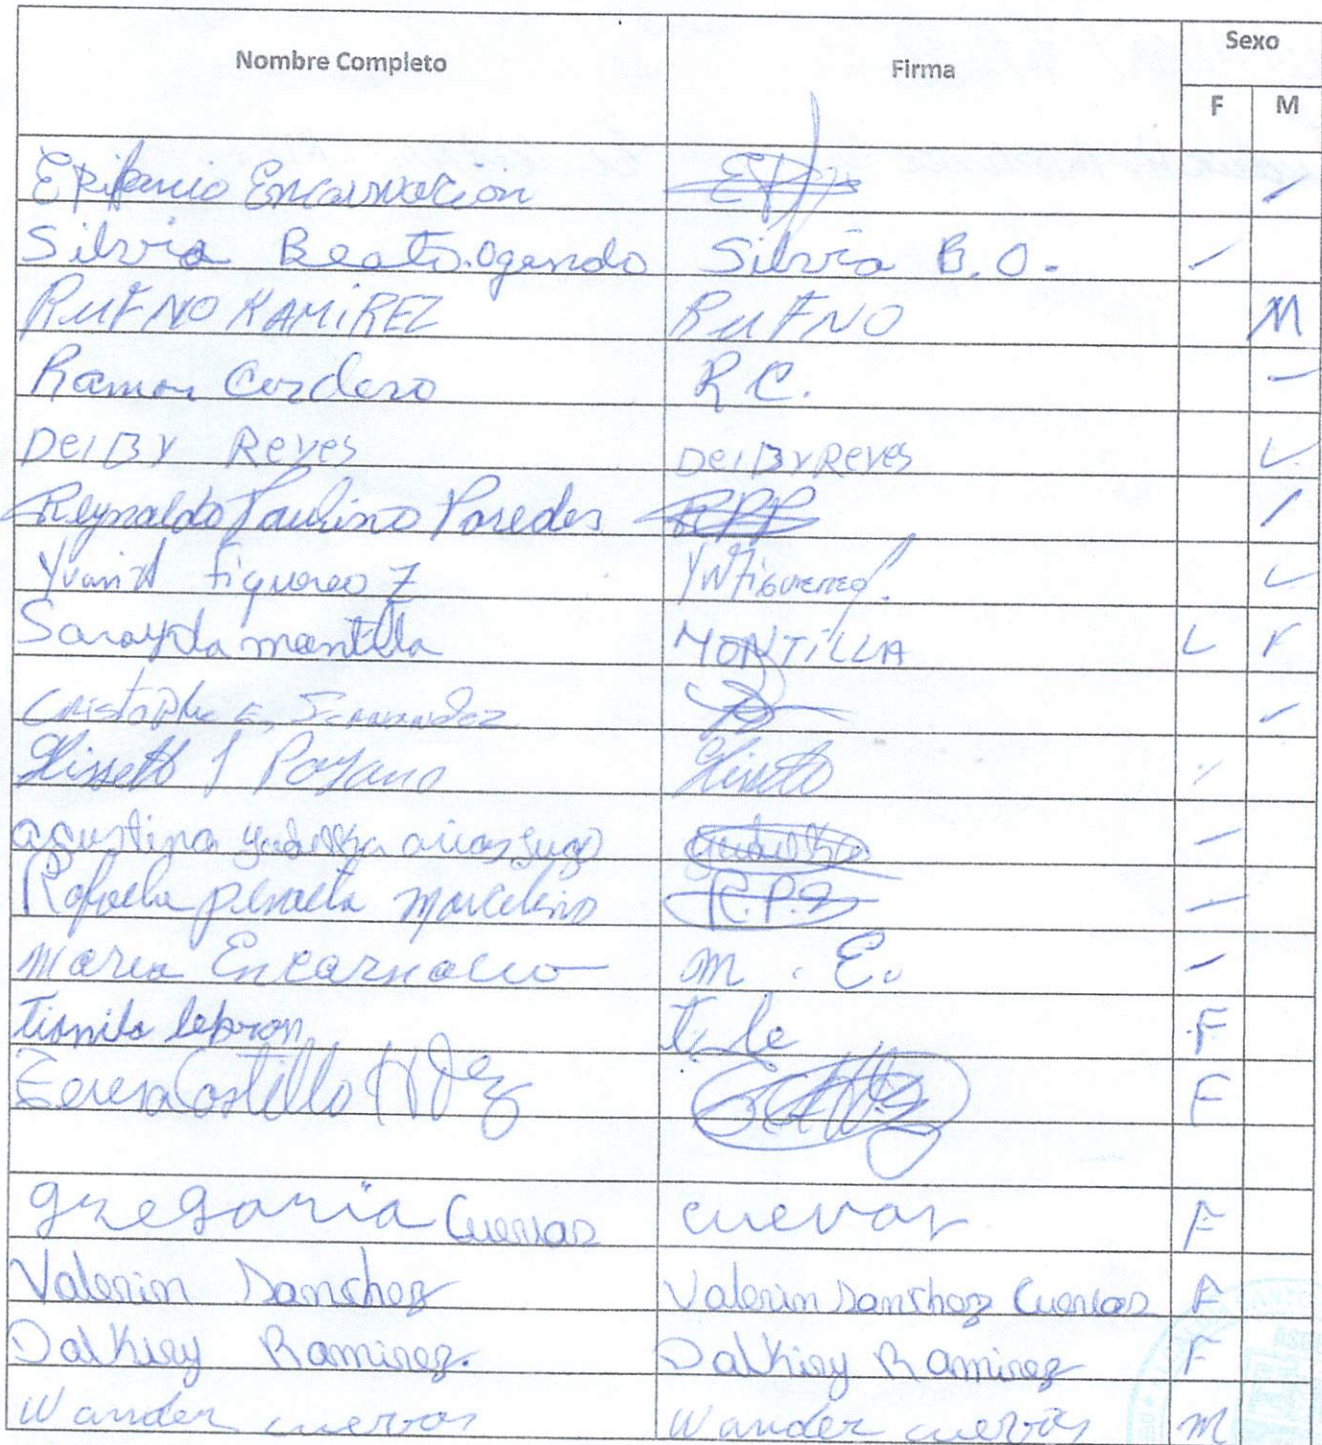 Nombre Completo Firma Sexo
F M
Epifanio Encarnacion
Silvia Beato.Ogando Silvia B.O.
RUFNO RAMIREZ RUFNO M
Ramon Cordero R.C.
DeiBy Reyes DeiByReyes
Reynaldo Paulino Paredes RPP
Figuereo
montilla MONTILLA
Lissett J Poyano Lissett
agustina arias
Rafaela peralta Marcelino R.P.
Maria Encarnacio m. E.
lebron t. le F
Teresa Castillo Hdez F
gregoria Cuevas cuevas F
Valerin Sanchez Valerin Sanchez Cuevas F
Dalkiry Ramirez. Dalkiry Ramirez F
Wander cuevas Wander cuevas M